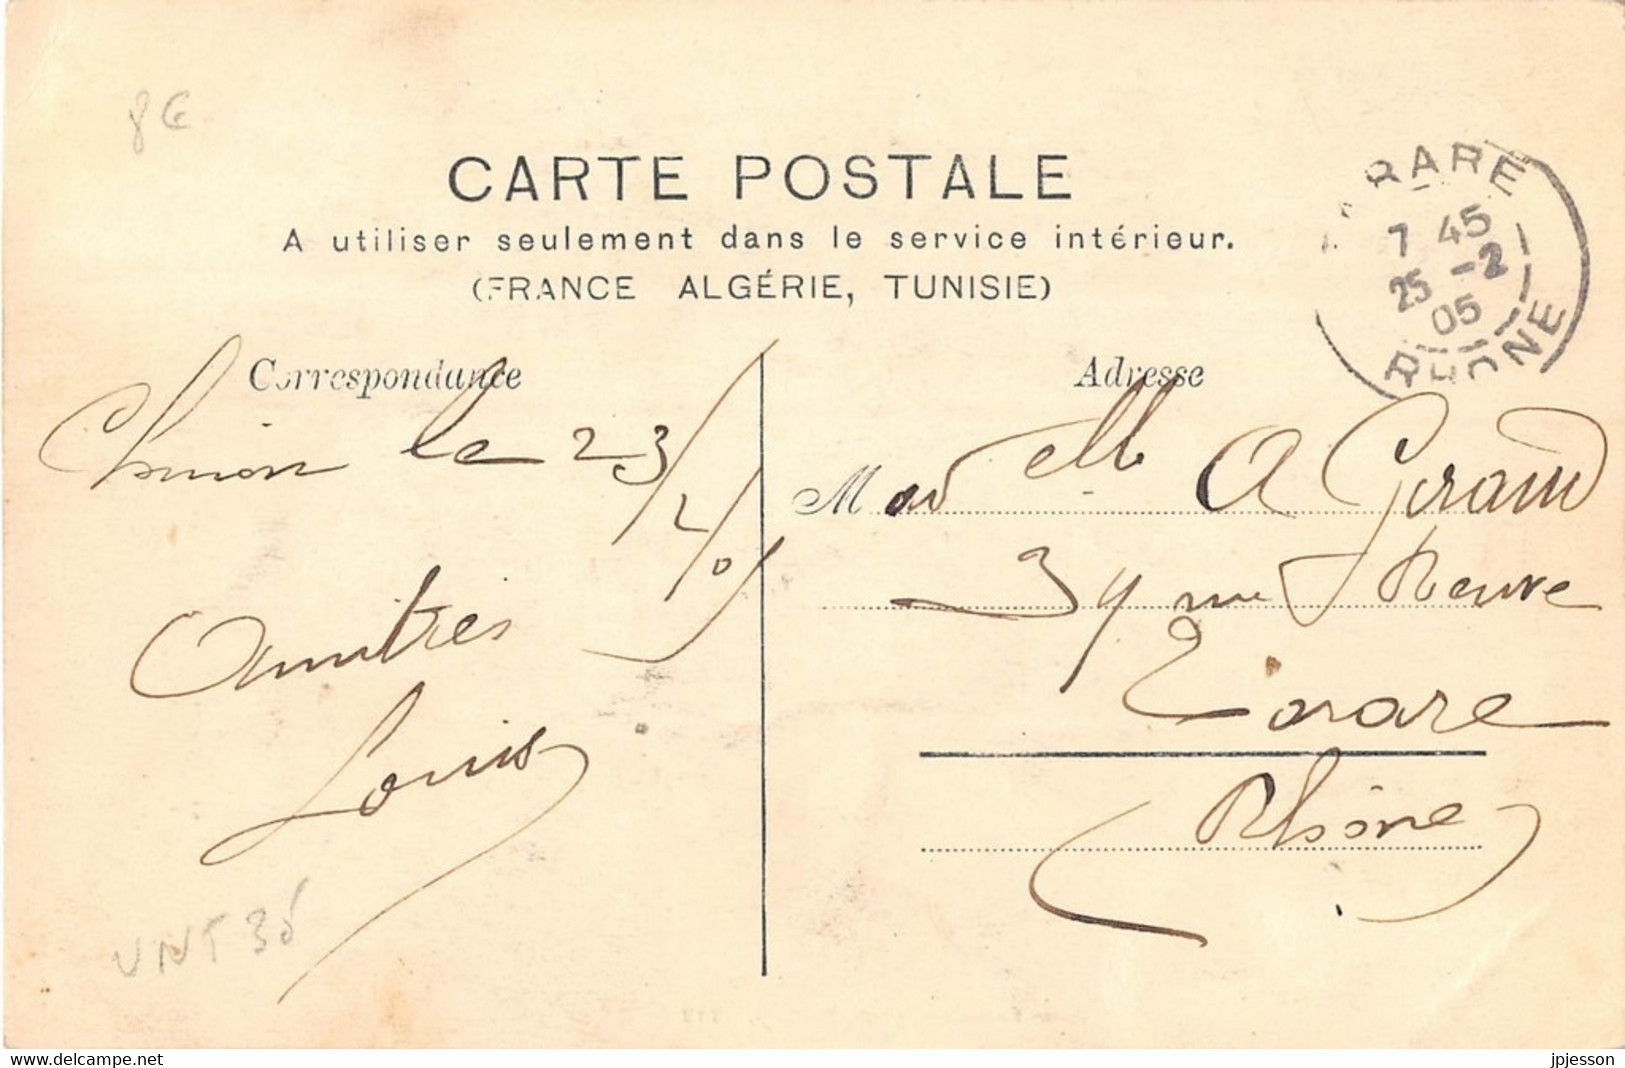 8€
CARTE POSTALE
A utiliser seulement dans le service intérieur.
(FRANCE ALGÉRIE, TUNISIE)
RARE
7 45
25 -2
05
RHONE
Correspondance
Adresse
Chinon le 23/2/05
Amitiés
Louis
Madelle A Giraud
34 rue Neuve
Tarare
Rhône
VNT 35
www.delcampe.net
jpjesson